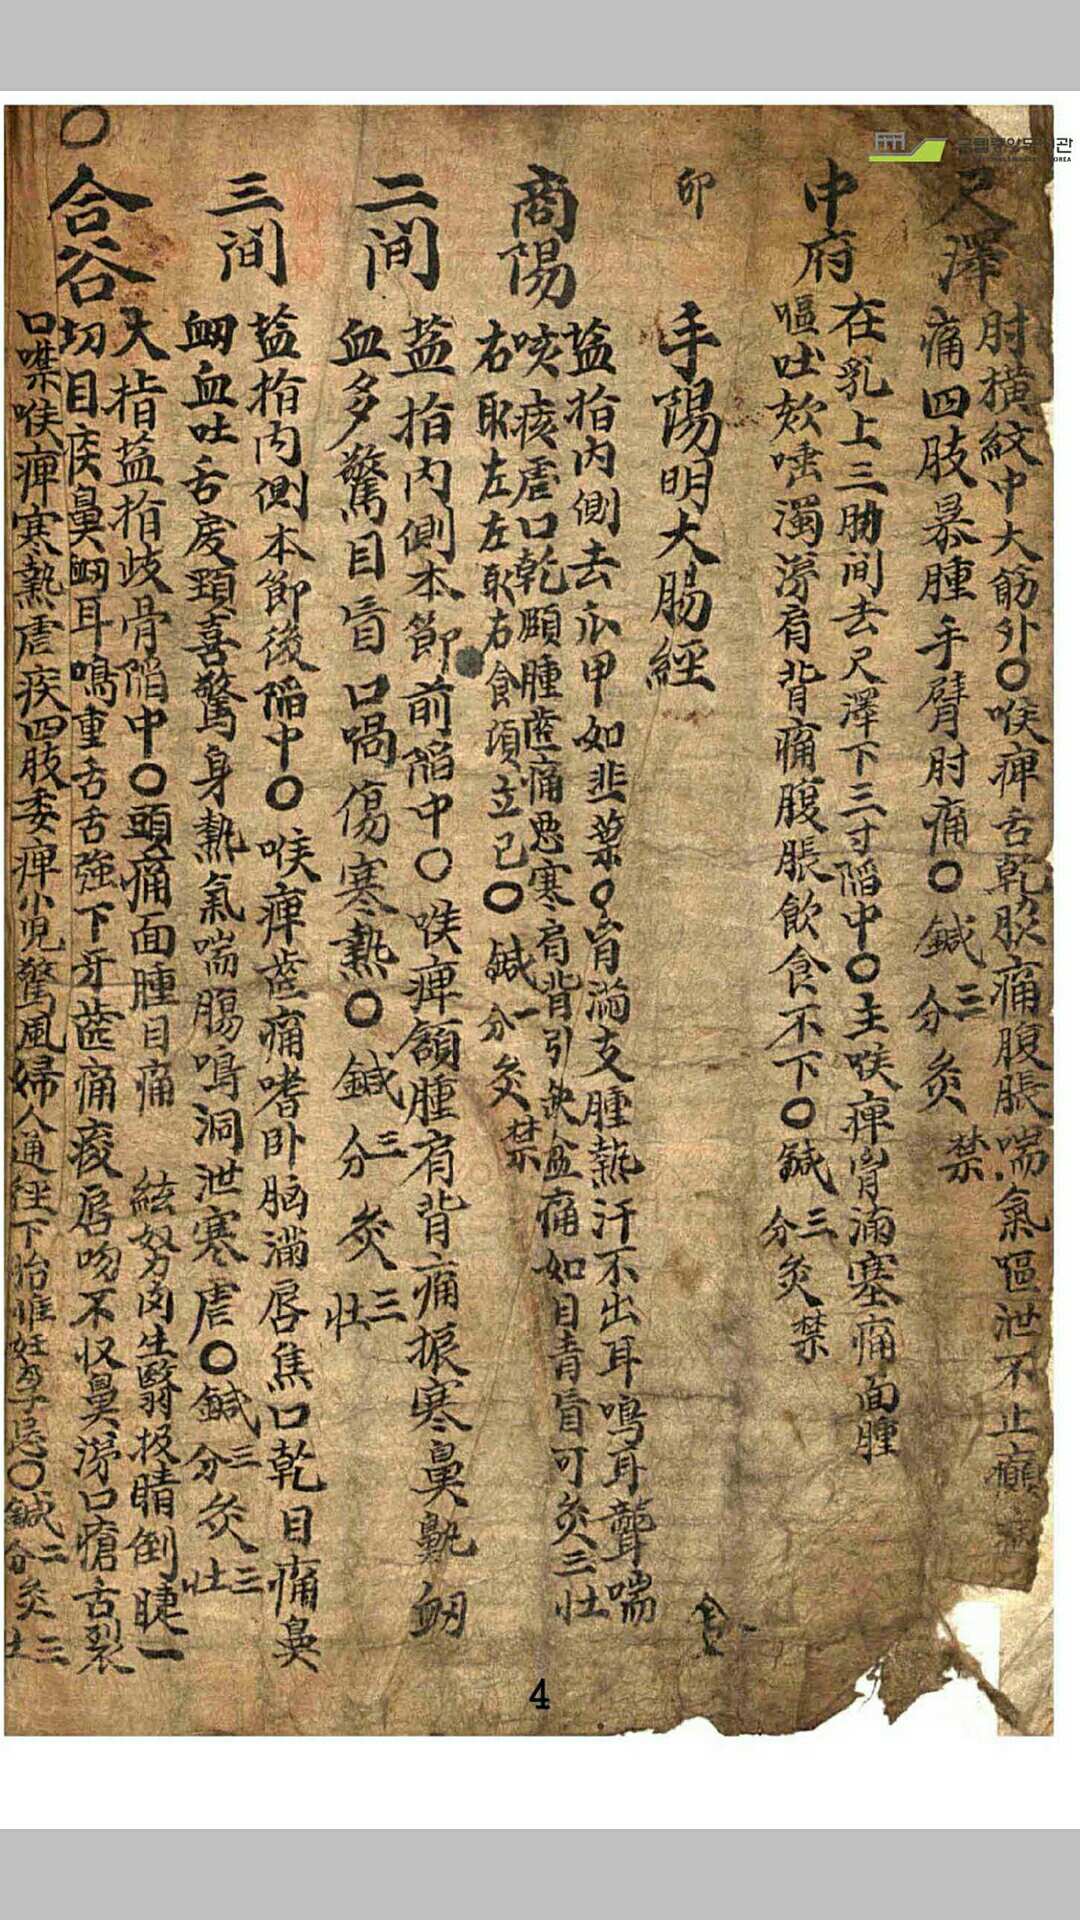 尺澤
肘橫紋中大筋外〇喉痺舌乾脇痛腹脹喘氣嘔泄不止癲
痛四肢暴腫手臂肘痛〇鍼三分灸禁
中府
在乳上三肋间去尺澤下三寸陷中〇主喉痺胷滿塞痛面腫
嘔吐欬唾濁涕肩背痛腹脹飲食不下〇鍼三分灸禁
卯
手陽明大腸經
商陽
盐指内側去爪甲如韮葉〇胷滿支腫熱汗不出耳鳴耳聾喘
咳痎瘧口乾頤腫齒痛恶寒肩背引缺盆痛如目青盲可灸三壮
右取左左取右食須立已〇鍼一分灸禁
二间
盐指内側本節前陷中〇喉痺頷腫肩背痛振寒鼻鼽衂
血多驚目盲口喎傷寒熱〇鍼三分灸三壮
三间
盐指内側本節後陷中〇喉痺齒痛嗜卧脑滿唇焦口乾目痛鼻
衂血吐舌戾頸喜驚身熱氣喘腸鳴洞泄寒瘧〇鍼三分灸三壮
〇
合谷
大指盐指歧骨陷中〇頭痛面腫目痛 絃努肉生翳扱睛倒睫一
切目疾鼻衂耳鳴重舌舌強下牙齒痛痠唇吻不收鼻涕口瘡舌裂
口噤喉痺寒熱瘧疾四肢委痺小児驚風婦人通經下胎惟妊孕忌〇鍼二分灸三壮
4